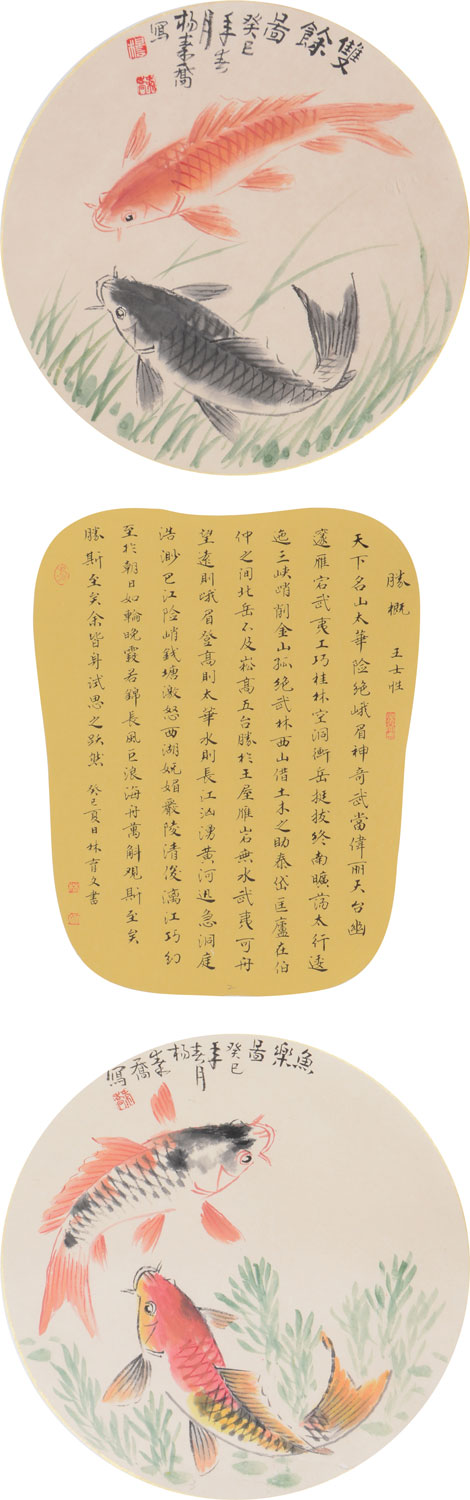 雙餘
圖
癸巳
年春
月
杨素喬
寫
勝概 王士性
天下名山太華险绝峨眉神奇武當偉丽天台幽
邃雁宕武夷工巧桂林空洞衡岳挺拔终南曠荡太行逶
迤三峡峭削金山孤绝武林西山借土木之助泰岱匡廬在伯
仲之间北岳不及崧高五台勝於王屋雁岩無水武夷可舟
望遠則峨眉登高則太華水則長江汹湧黄河迅急洞庭
浩渺巴江险峭錢塘激怒西湖妩媚嚴陵清俊漓江巧幻
至於朝日如輪晚霞若錦長風巨浪海舟萬斛观斯至矣
勝斯至矣余皆身试思之跃然 癸巳夏日林育文書
魚
樂
圖
癸巳
年
春月
杨
素
喬
寫